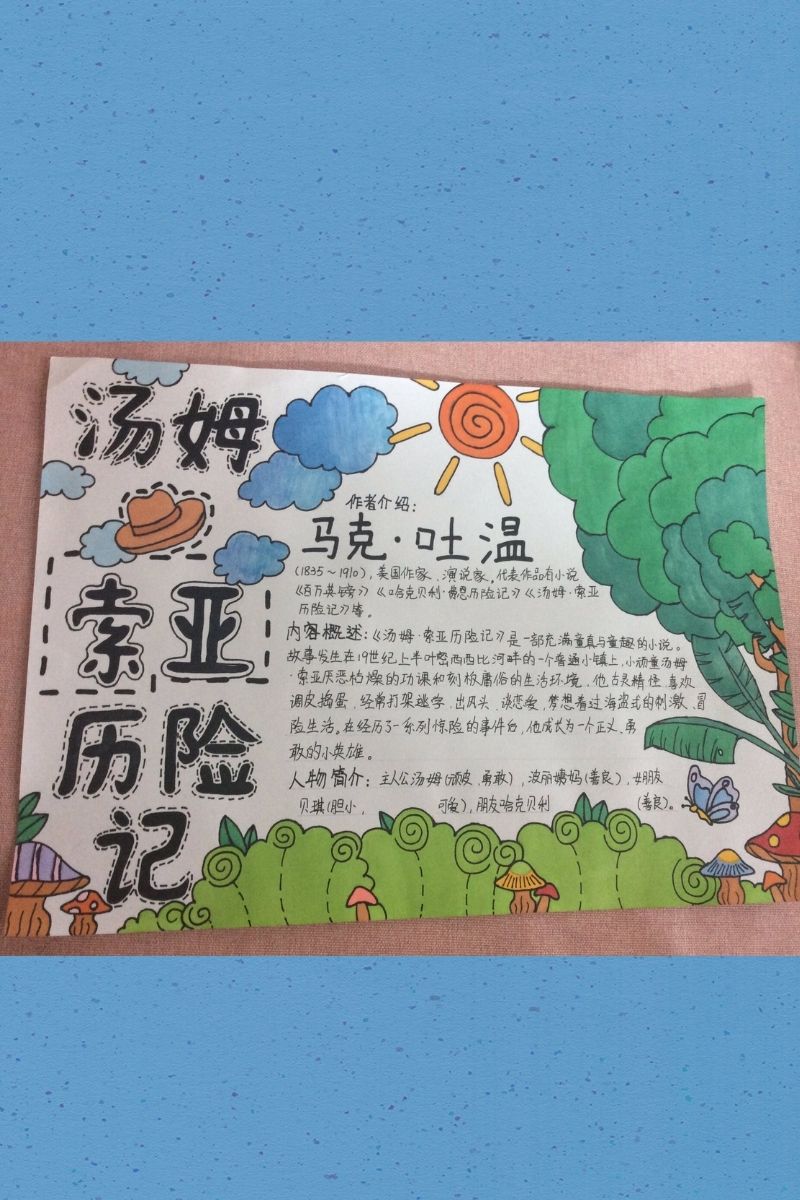 汤姆
索亚
历险
记
作者介绍：
马克·吐温
(1835～1910)，美国作家、演说家，代表作品有小说
《百万英镑》《哈克贝利·费恩历险记》《汤姆·索亚
历险记》等。
内容概述：《汤姆·索亚历险记》是一部充满童真与童趣的小说。
故事发生在19世纪上半叶密西西比河畔的一个普通小镇上，小顽童汤姆
·索亚厌恶枯燥的功课和刻板庸俗的生活环境，他古灵精怪、喜欢
调皮捣蛋，经常打架逃学、出风头、谈恋爱，梦想着过海盗式的刺激、冒
险生活。在经历了一系列惊险的事件后，他成长为一个正义、勇
敢的小英雄。
人物简介：主人公汤姆(顽皮、勇敢)，波丽姨妈(善良)，女朋友
贝琪(胆小、可爱)，朋友哈克贝利(善良)。